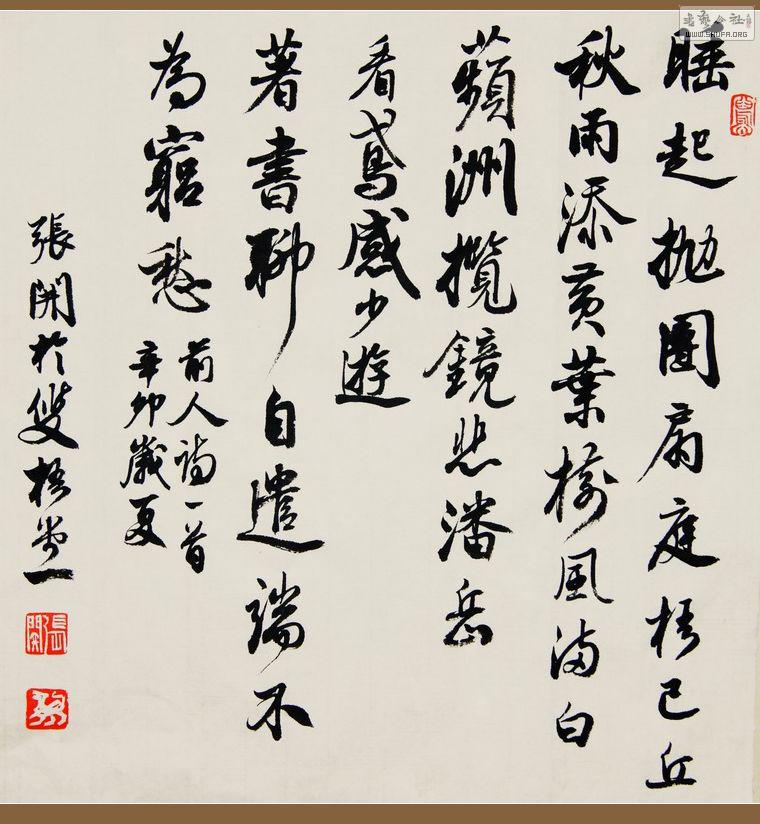 書藝公社
WWW.SHUFA.ORG
睡起抛團扇庭梧已丘
秋雨添黄葉樹風滿白
蘋洲攬鏡悲潘岳
看鳶感少遊
著書聊自遣端不
為窮愁
前人詩一首
辛卯歲夏
張開於雙梧堂一
張開